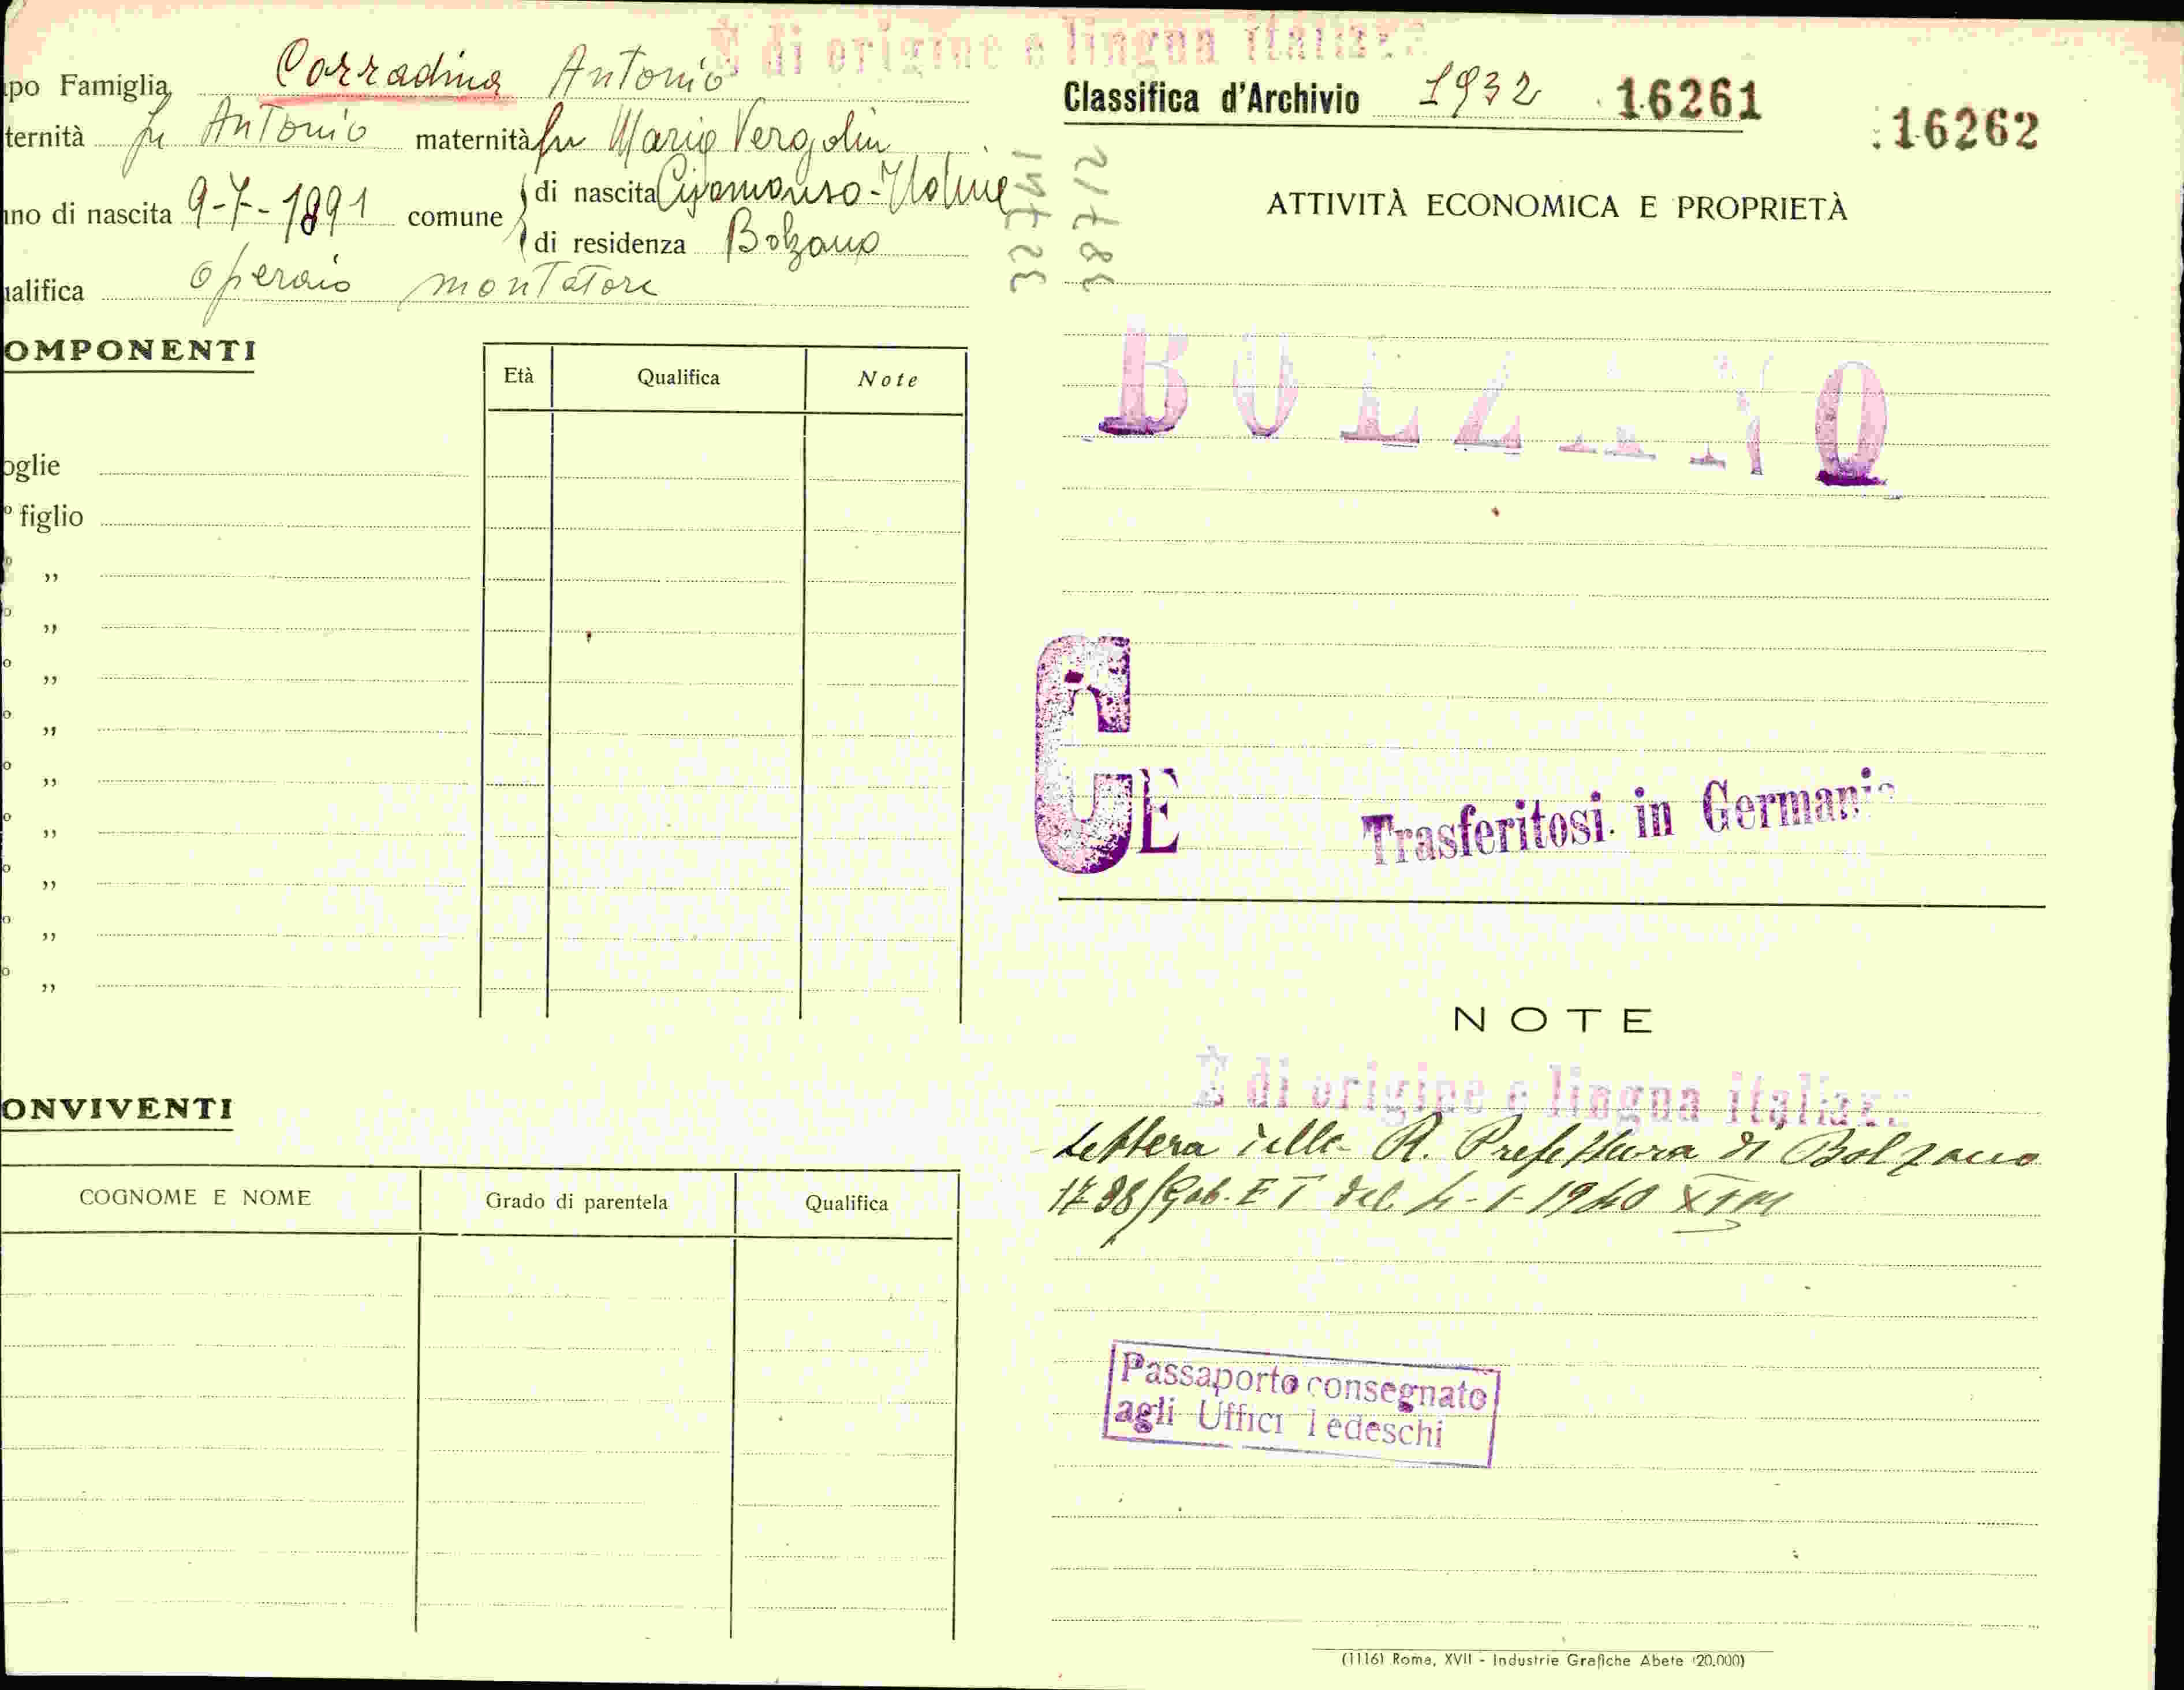 È di origine e lingua italiana
po Famiglia Corradina Antonio
ternità fu Antonio maternità fu Maria Vergolin
nno di nascita 9-7-1891 comune
di nascita
di residenza Bolzano
alifica operaio montatore
OMPONENTI
Età Qualifica Note
oglie
º figlio
º „
º „
º „
º „
º „
º „
º „
º „
º „
ONVIVENTI
COGNOME E NOME Grado di parentela Qualifica
Classifica d'Archivio 1932 16261
16262
ATTIVITÀ ECONOMICA E PROPRIETÀ
BOLZANO
CE
Trasferitosi in Germania
NOTE
È di origine e lingua italiana
Lettera della R. Prefettura di Bolzano
del 4-1-1940
Passaporto consegnato
agli Uffici Tedeschi
(1116) Roma, XVII - Industrie Grafiche Abete (20.000)